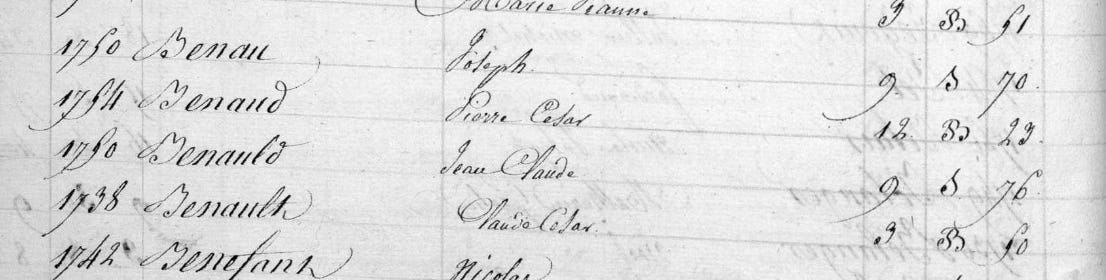 Marie Jeanne 3 B 51
1750 Benau Joseph 9 S 70
1754 Benaud Pierre Cesar 12 B 23
1750 Benauld Jean Claude 9 S 76
1738 Benault Claude Cesar 3 B 50
1742 Benefant Nicolas